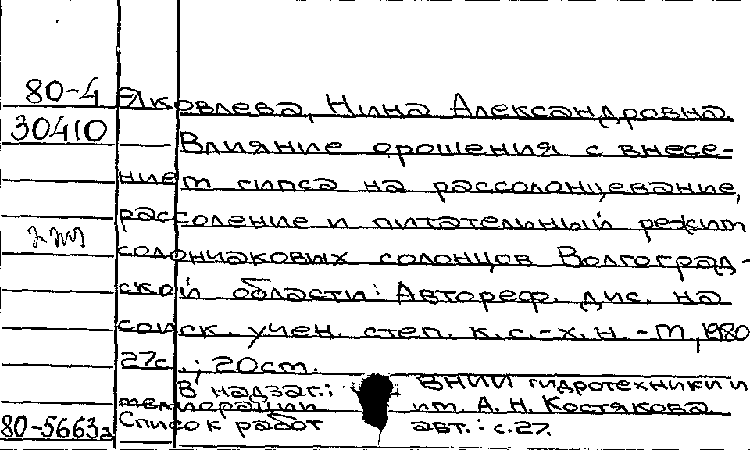 80-4 Яковлева, Нина Александровна
30410 Влияние орошения с внесе-
нием гипса на рассолонцевание,
рассоление и питательный режим
солончаковых солонцов Волгоград-
ской области: Автореф. дис. на
соиск. учен. степ. к.с.-х.н. - М, 1980
27с.; 20см.
В надзаг.: ВНИИ гидротехники и
мелиорации им. А. Н. Костякова
80-5663а Список работ авт.: с.27.